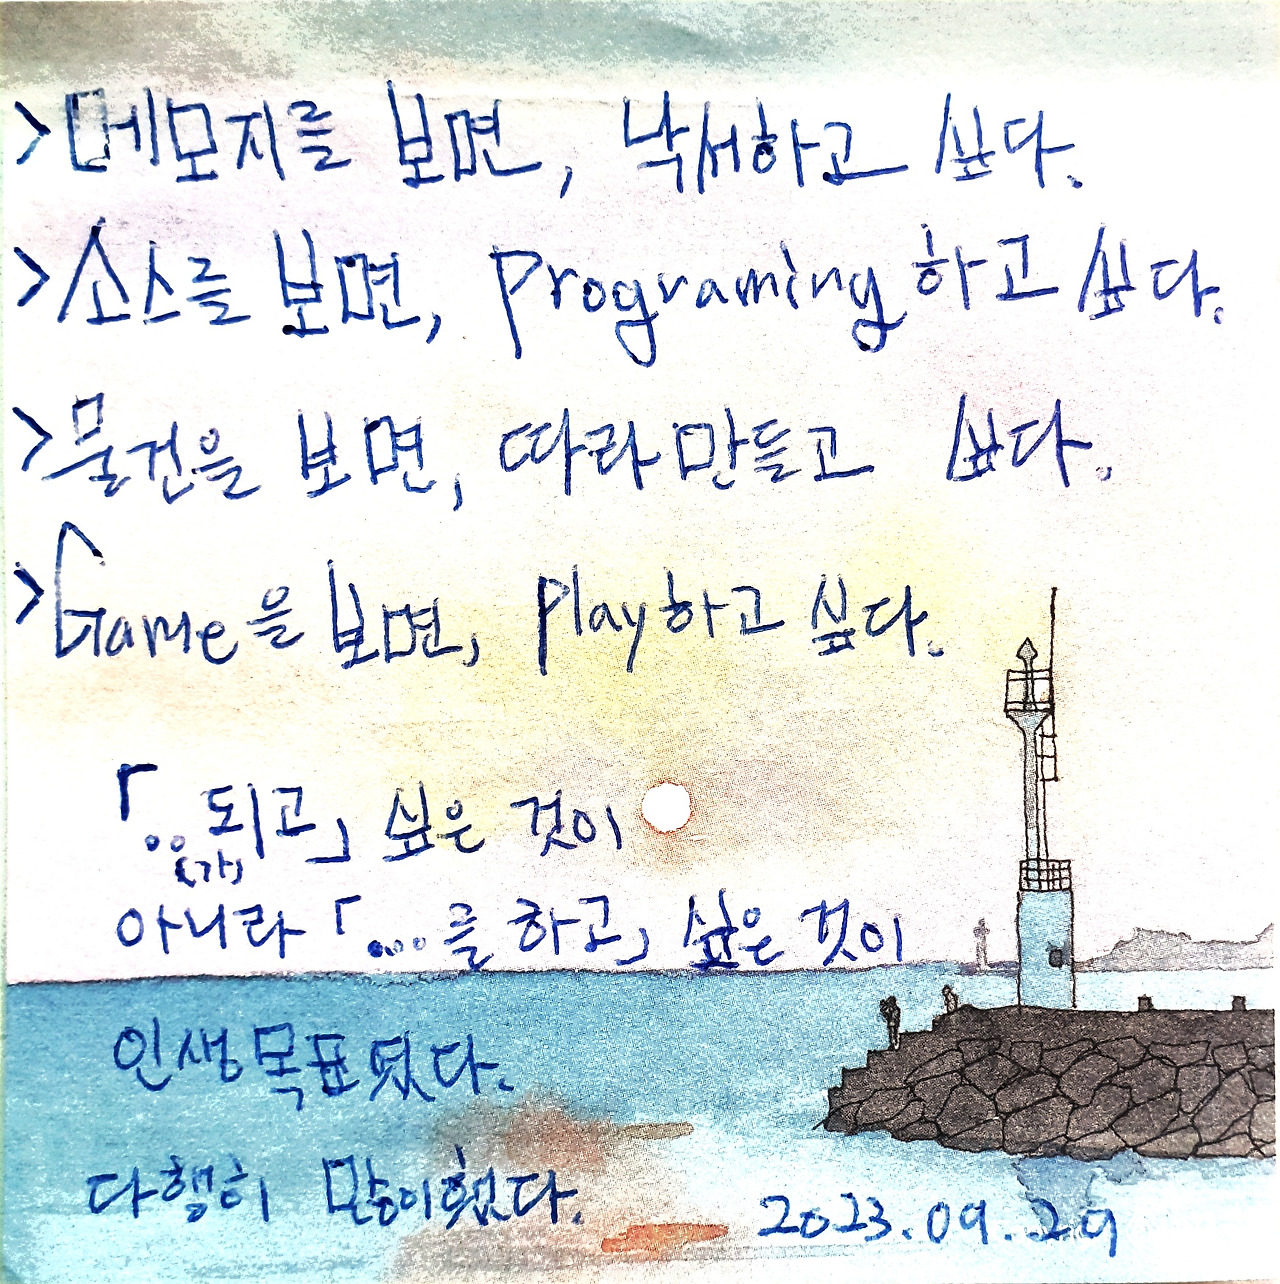 >메모지를 보면, 낙서하고 싶다.
>소스를 보면, programing하고 싶다.
>물건을 보면, 따라만들고 싶다.
>Game을 보면, play하고 싶다.
「..되고」 싶은 것이
(가)
아니라 「....를 하고」 싶은 것이
인생목표였다.
다행히 많이했다.
2023.09.29